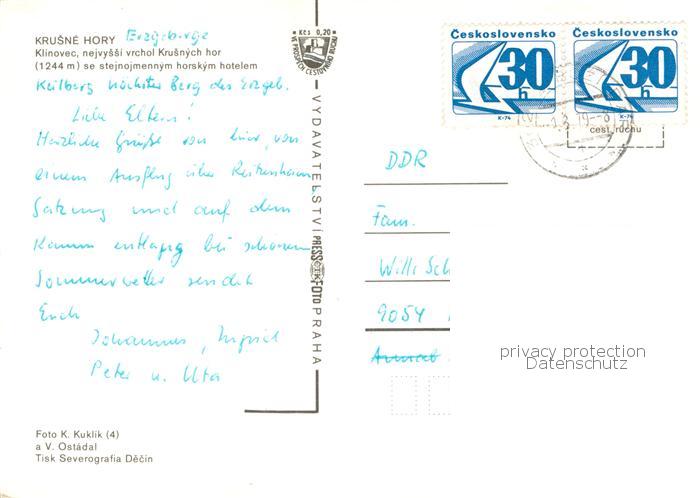 KRUŠNÉ HORY Erzgebirge
Klínovec, nejvyšší vrchol Krušných hor
(1244 m) se stejnojmenným horským hotelem
Keilberg höchster Berg des Erzgeb.
Liebe Eltern!
Herzliche Grüße von hier, von
einem Ausflug über Reitzenhain,
Satzung und auf dem
Kamm entlang bei schönem
Sommerwetter sendet
Euch
Johannes, Ingrid
Peter u. Uta
Foto K. Kuklík (4)
a V. Ostádal
Tisk Severografia Děčín
Kčs 0,20
VE PROSPĚCH CESTOVNÍHO RUCHU
VYDAVATELSTVÍ PRESSFOTO PRAHA
Československo
30h
K-74
Československo
30h
K-74
cest. ruchu
DDR
Fam.
Willi Sch
9054
privacy protection
Datenschutz